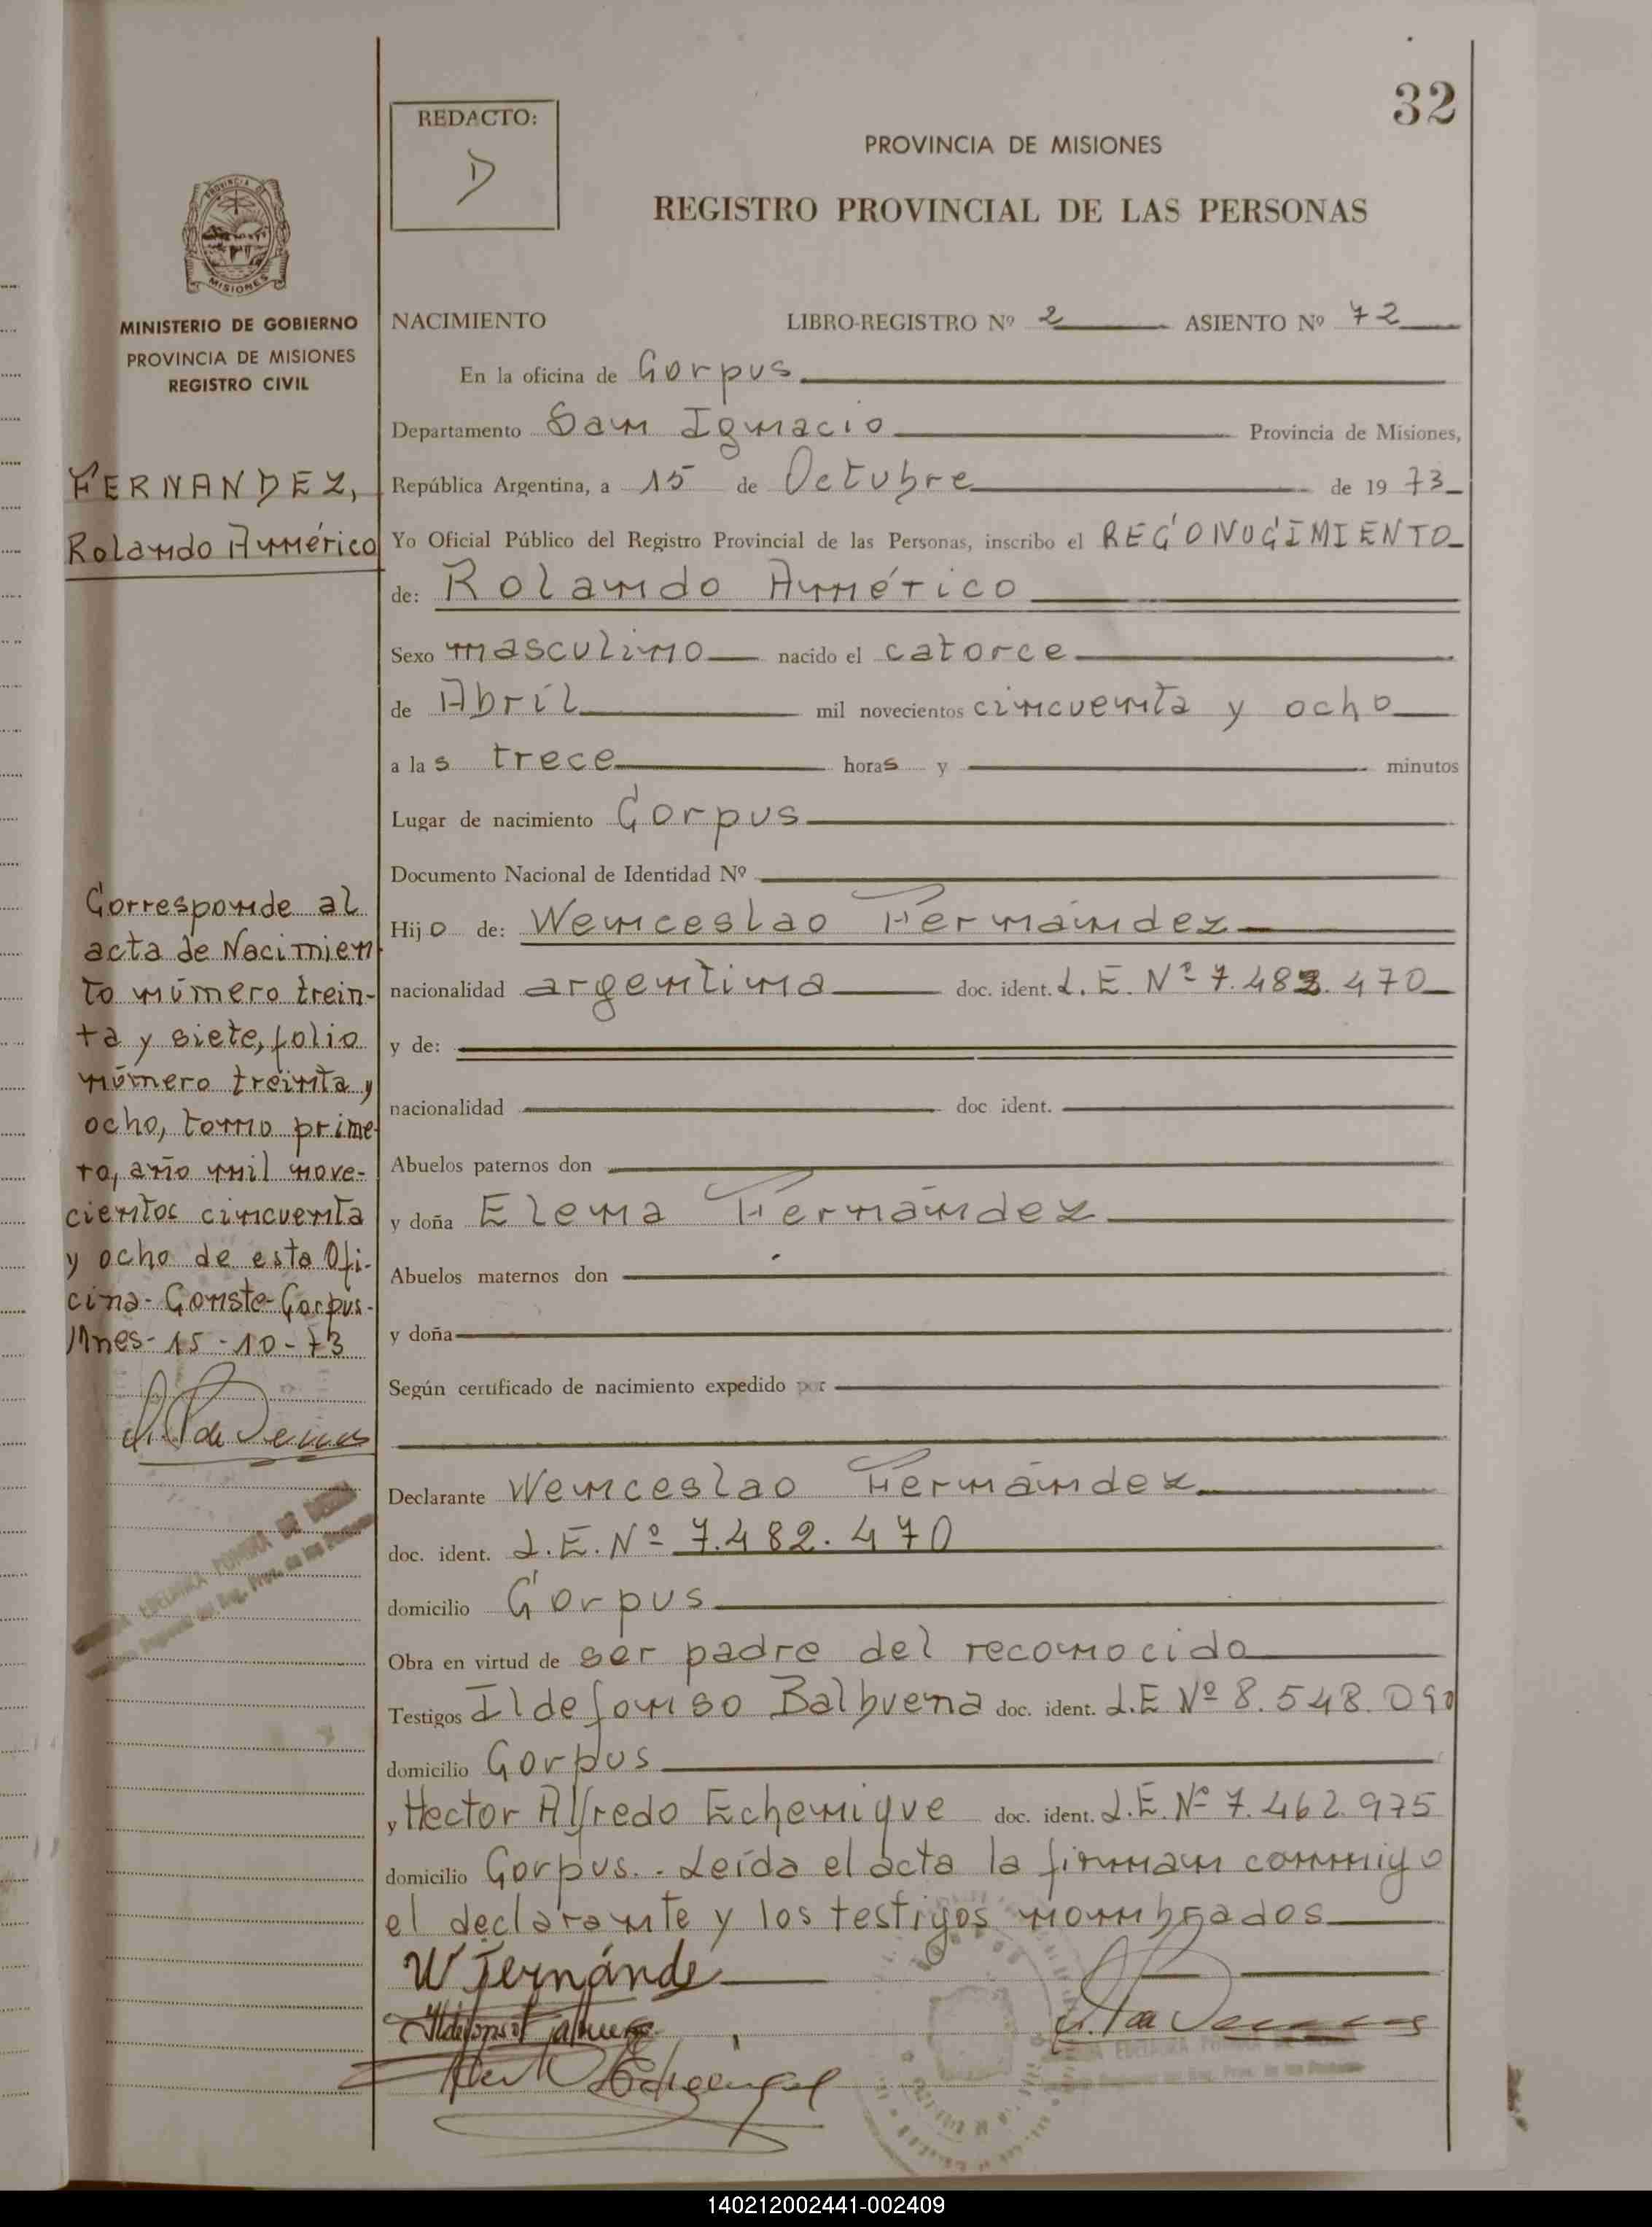 32
REDACTO:
D
PROVINCIA DE MISIONES
REGISTRO PROVINCIAL DE LAS PERSONAS
PROVINCIA DE
MISIONES
MINISTERIO DE GOBIERNO
PROVINCIA DE MISIONES
REGISTRO CIVIL
FERNANDEZ,
Rolando Américo
Corresponde al
acta de Nacimien
to número trein-
ta y siete, folio
número treinta y
ocho, tomo prime-
ro, año mil nove-
cientos cincuenta
y ocho de esta Ofi-
cina- Conste- Corpus-
Mnes- 15-10-73
NACIMIENTO LIBRO-REGISTRO Nº 2 ASIENTO Nº 72
En la oficina de Corpus
Departamento San Ignacio Provincia de Misiones,
República Argentina, a 15 de Octubre de 1973
Yo Oficial Público del Registro Provincial de las Personas, inscribo el RECONOCIMIENTO
de: Rolando Américo
Sexo masculino nacido el catorce
de Abril mil novecientos cincuenta y ocho
a las trece horas y minutos
Lugar de nacimiento Corpus
Documento Nacional de Identidad Nº
Hijo de: Wenceslao Fernández
nacionalidad argentina doc. ident. L.E. Nº 7.482.470
y de:
nacionalidad doc. ident.
Abuelos paternos don
y doña Elena Fernández
Abuelos maternos don
y doña
Según certificado de nacimiento expedido por
Declarante Wenceslao Fernández
doc. ident. L.E. Nº 7.482.470
domicilio Corpus
Obra en virtud de ser padre del reconocido
Testigos Ildefonso Balbuena doc. ident. L.E Nº 8.548.090
domicilio Corpus
y Hector Alfredo Echenique doc. ident. L.E. Nº 7.462.975
domicilio Corpus.- Leída el acta la firman conmigo
el declarante y los testigos nombrados
W Fernánde
140212002441-002409